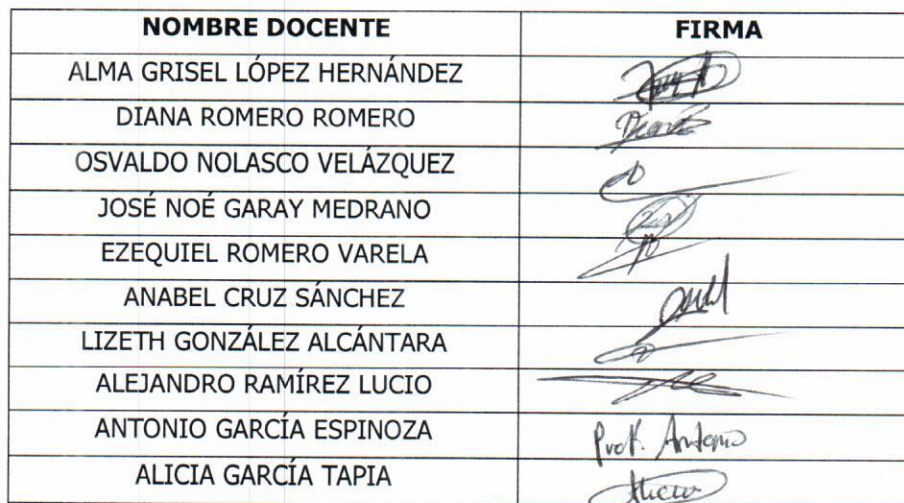 NOMBRE DOCENTE FIRMA
ALMA GRISEL LÓPEZ HERNÁNDEZ
DIANA ROMERO ROMERO
OSVALDO NOLASCO VELÁZQUEZ
JOSÉ NOÉ GARAY MEDRANO
EZEQUIEL ROMERO VARELA
ANABEL CRUZ SÁNCHEZ
LIZETH GONZÁLEZ ALCÁNTARA
ALEJANDRO RAMÍREZ LUCIO
ANTONIO GARCÍA ESPINOZA Prof. Antonio
ALICIA GARCÍA TAPIA